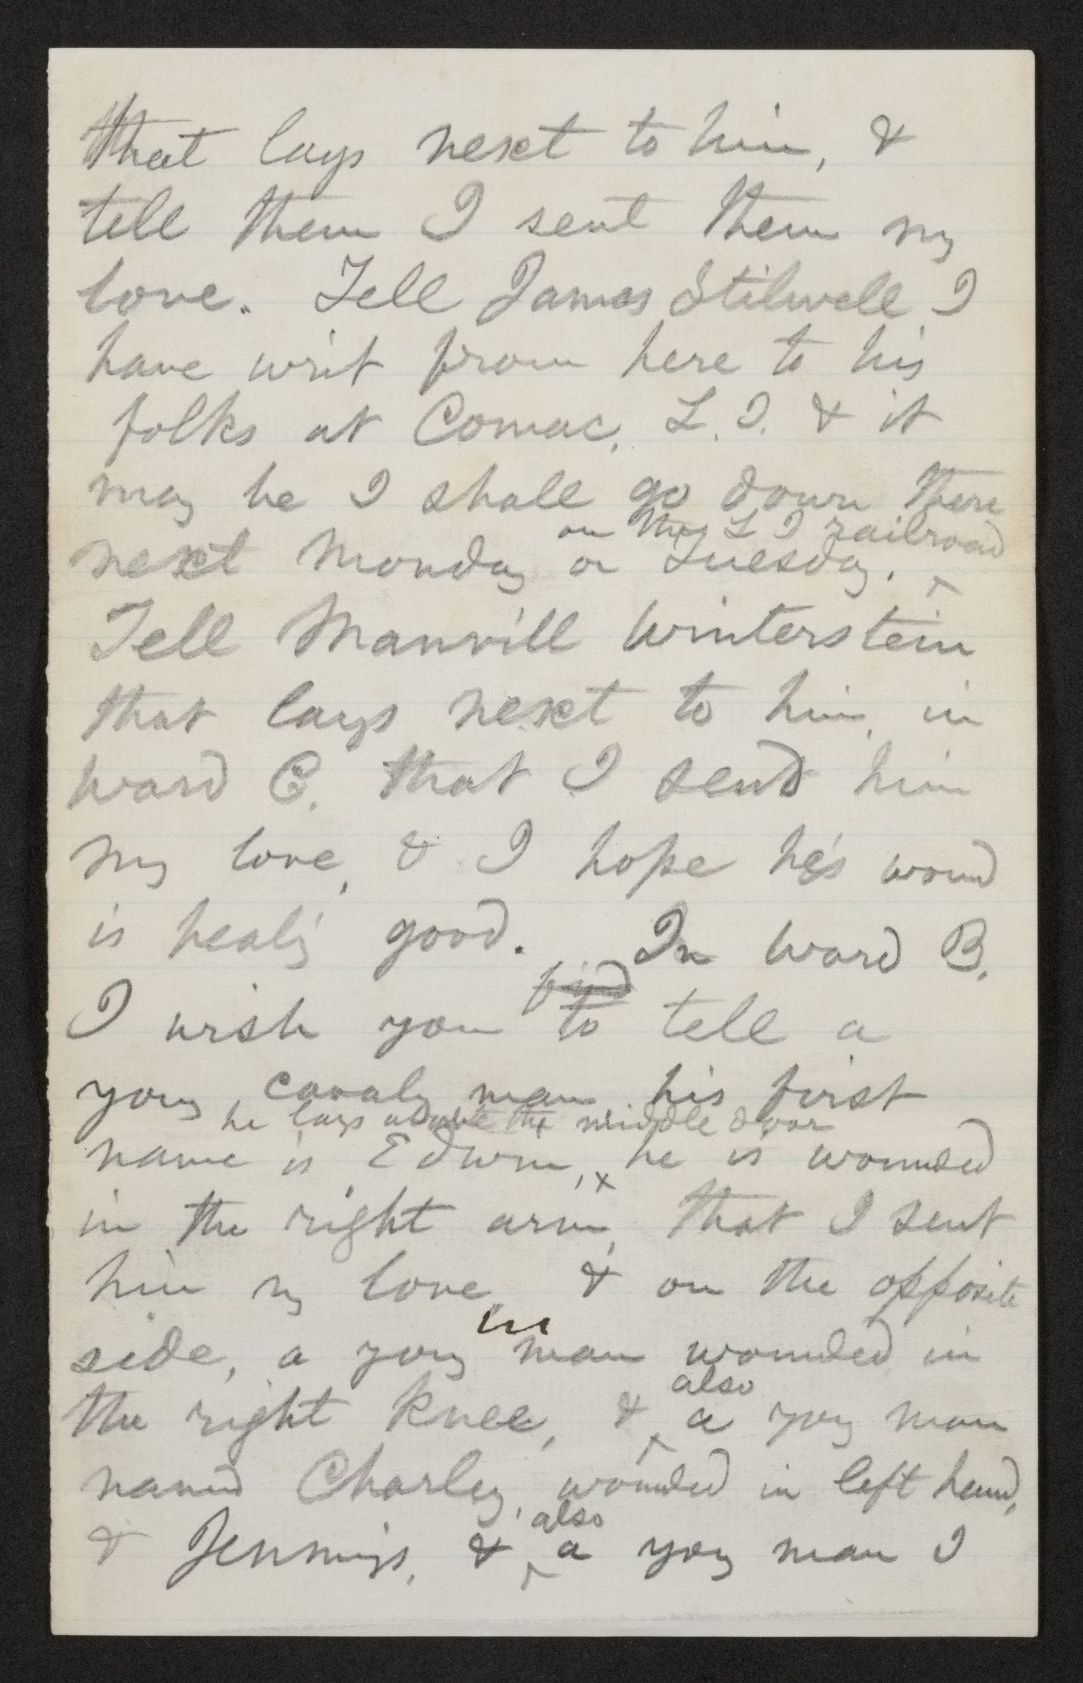 that lays next to him, &
tell them I sent them my
love. Tell James Stilwell I
have writ from here to his
folks at Comac, L. I. & it
may be I shall go down there
on the L I railroad
next Monday or Tuesday.
Tell Manvill Winterstein
that lays next to him in
ward C. that I send him
my love, & I hope he's wound
is healing good. In ward B.
find
I wish you to tell a
young cavalry man his first
he lays above the middle door
name is Edwin, x he is wounded
in the right arm, that I sent
him my love, & on the opposite
side, a young man wounded in
also
the right knee, & a young man
named Charley, wounded in left hand,
also
& Jennings, & a young man I